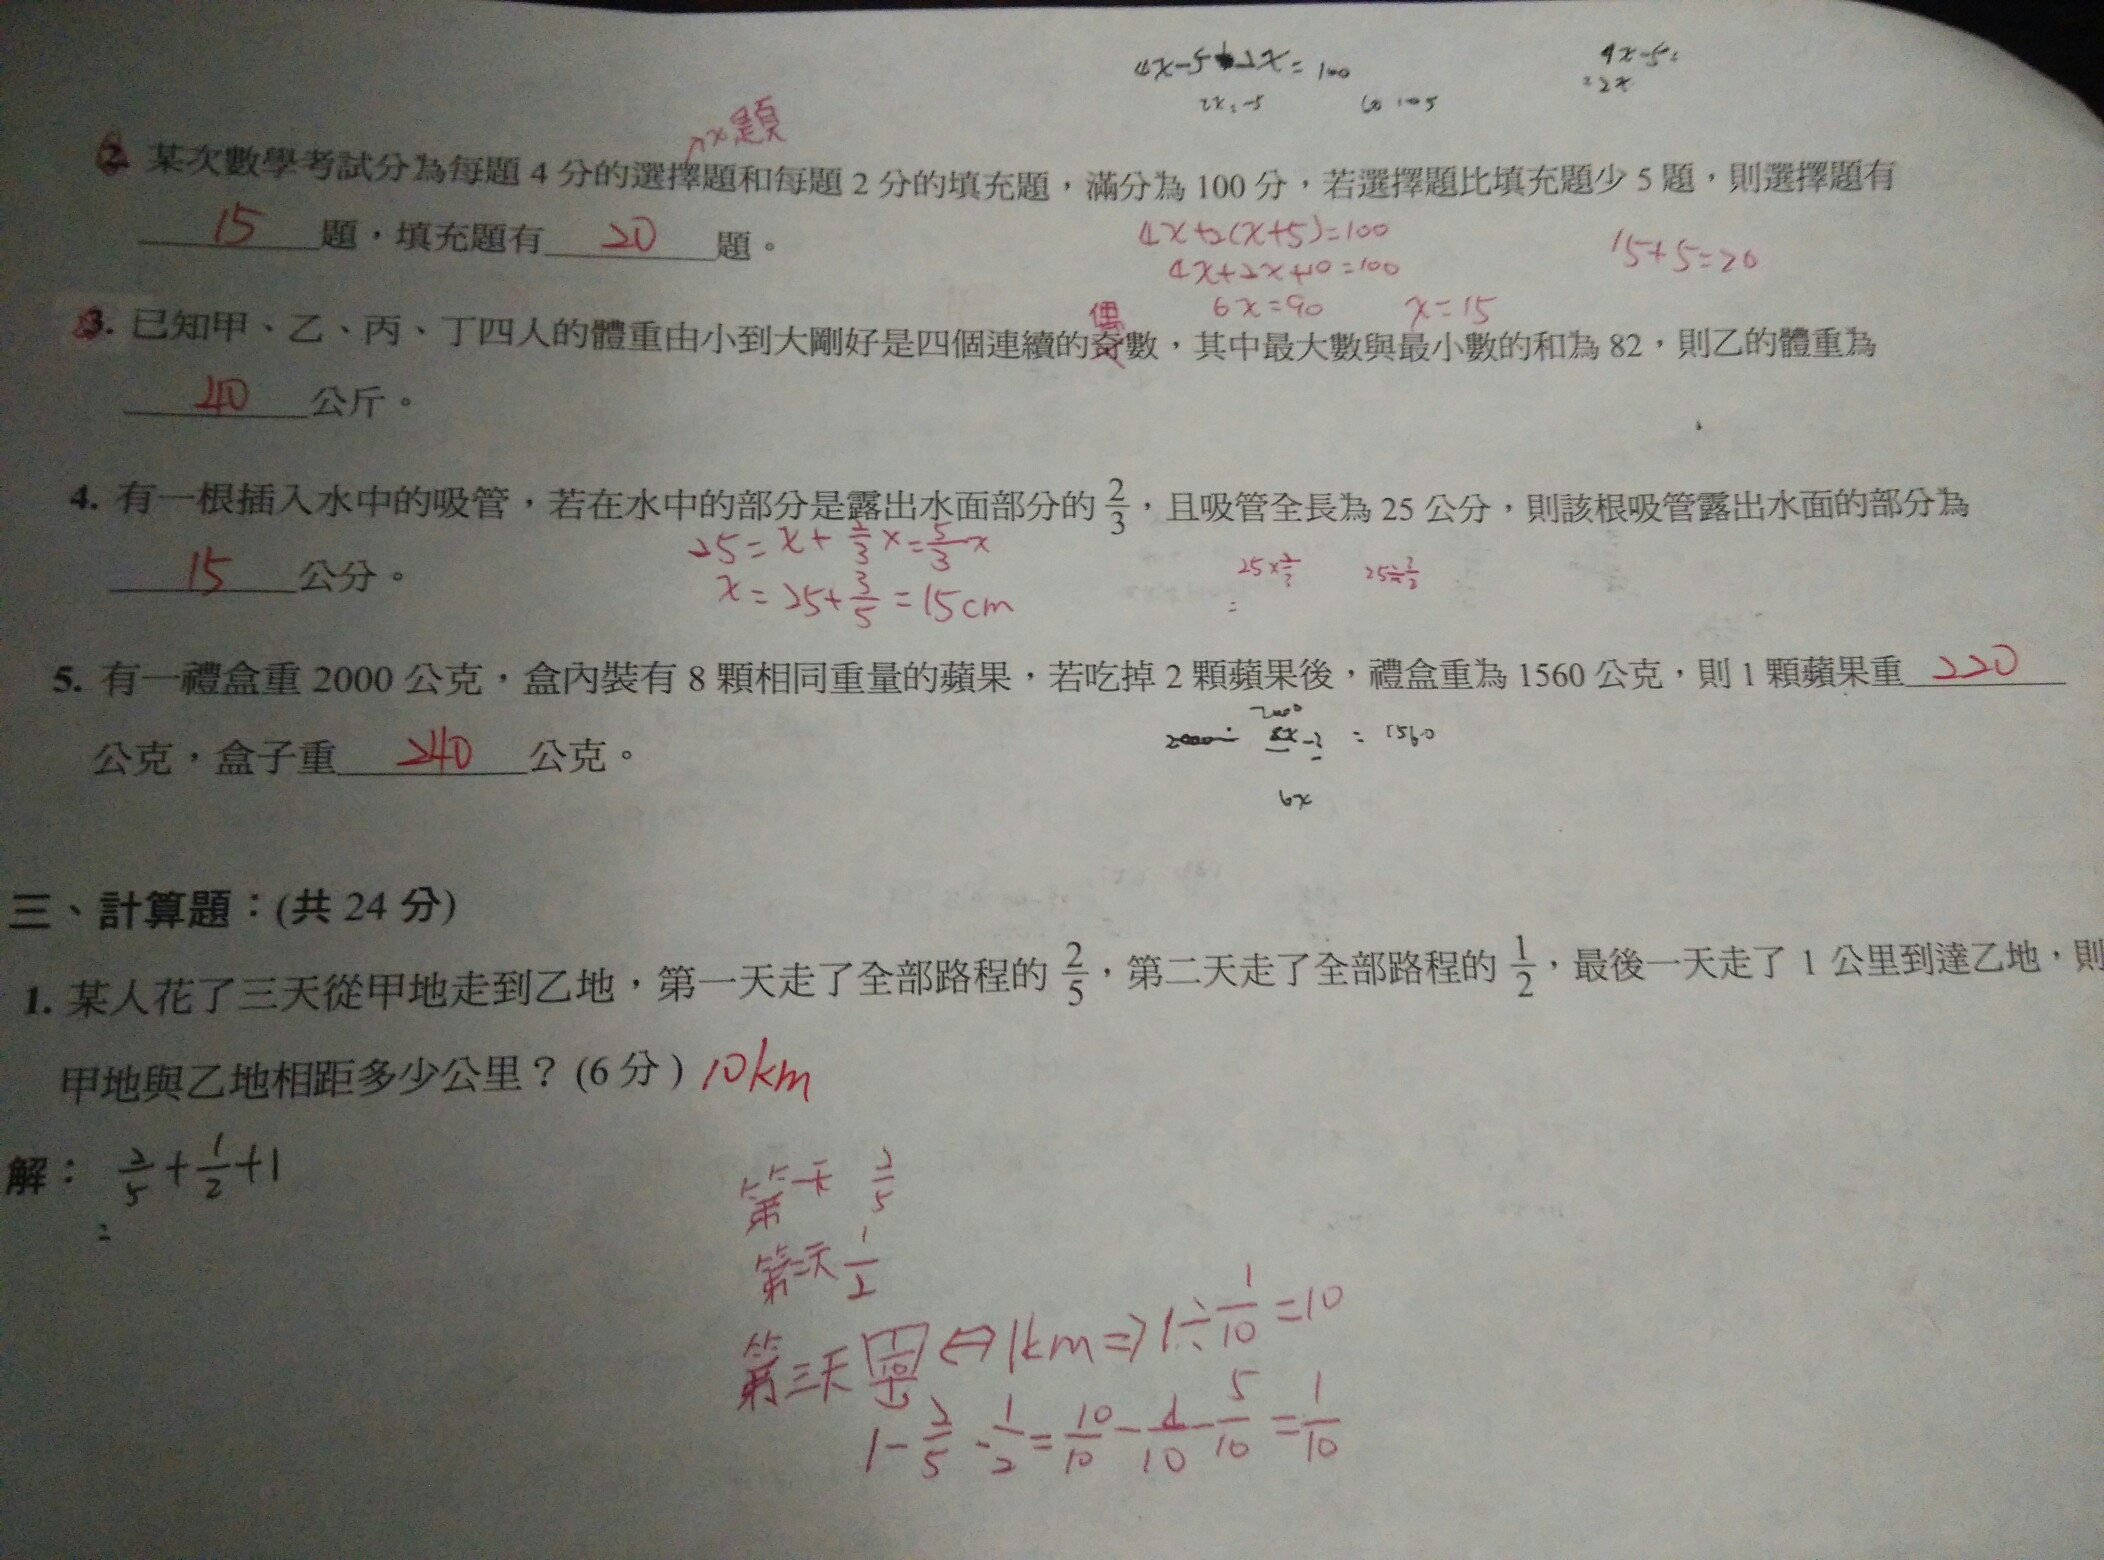 4x-5+2x=100
4x-5=
=2x
2x=-5
6x 105
x題
2. 某次數學考試分為每題 4 分的選擇題和每題 2 分的填充題，滿分為 100 分，若選擇題比填充題少 5 題，則選擇題有
15 題，填充題有 20 題。
4x+2(x+5)=100
15+5=20
4x+2x+10=100
6x=90 x=15
偶
3. 已知甲、乙、丙、丁四人的體重由小到大剛好是四個連續的奇數，其中最大數與最小數的和為 82，則乙的體重為
40 公斤。
4. 有一根插入水中的吸管，若在水中的部分是露出水面部分的 2/3，且吸管全長為 25 公分，則該根吸管露出水面的部分為
15 公分。
25=x+2/3x=5/3x
x=25+3/5=15cm
25×2/3 25÷2/3
=
5. 有一禮盒重 2000 公克，盒內裝有 8 顆相同重量的蘋果，若吃掉 2 顆蘋果後，禮盒重為 1560 公克，則 1 顆蘋果重 220
公克，盒子重 240 公克。
2000
2000- 8x-2 = 1560
6x
三、計算題：(共 24 分)
1. 某人花了三天從甲地走到乙地，第一天走了全部路程的 2/5，第二天走了全部路程的 1/2，最後一天走了 1 公里到達乙地，則
甲地與乙地相距多少公里？(6 分) 10km
解： 2/5+1/2+1
=
第一天 2/5
第二天 1/2
第三天 1/10 ⇔1km⇒1÷1/10=10
1-2/5-1/2=10/10-4/10-5/10=1/10